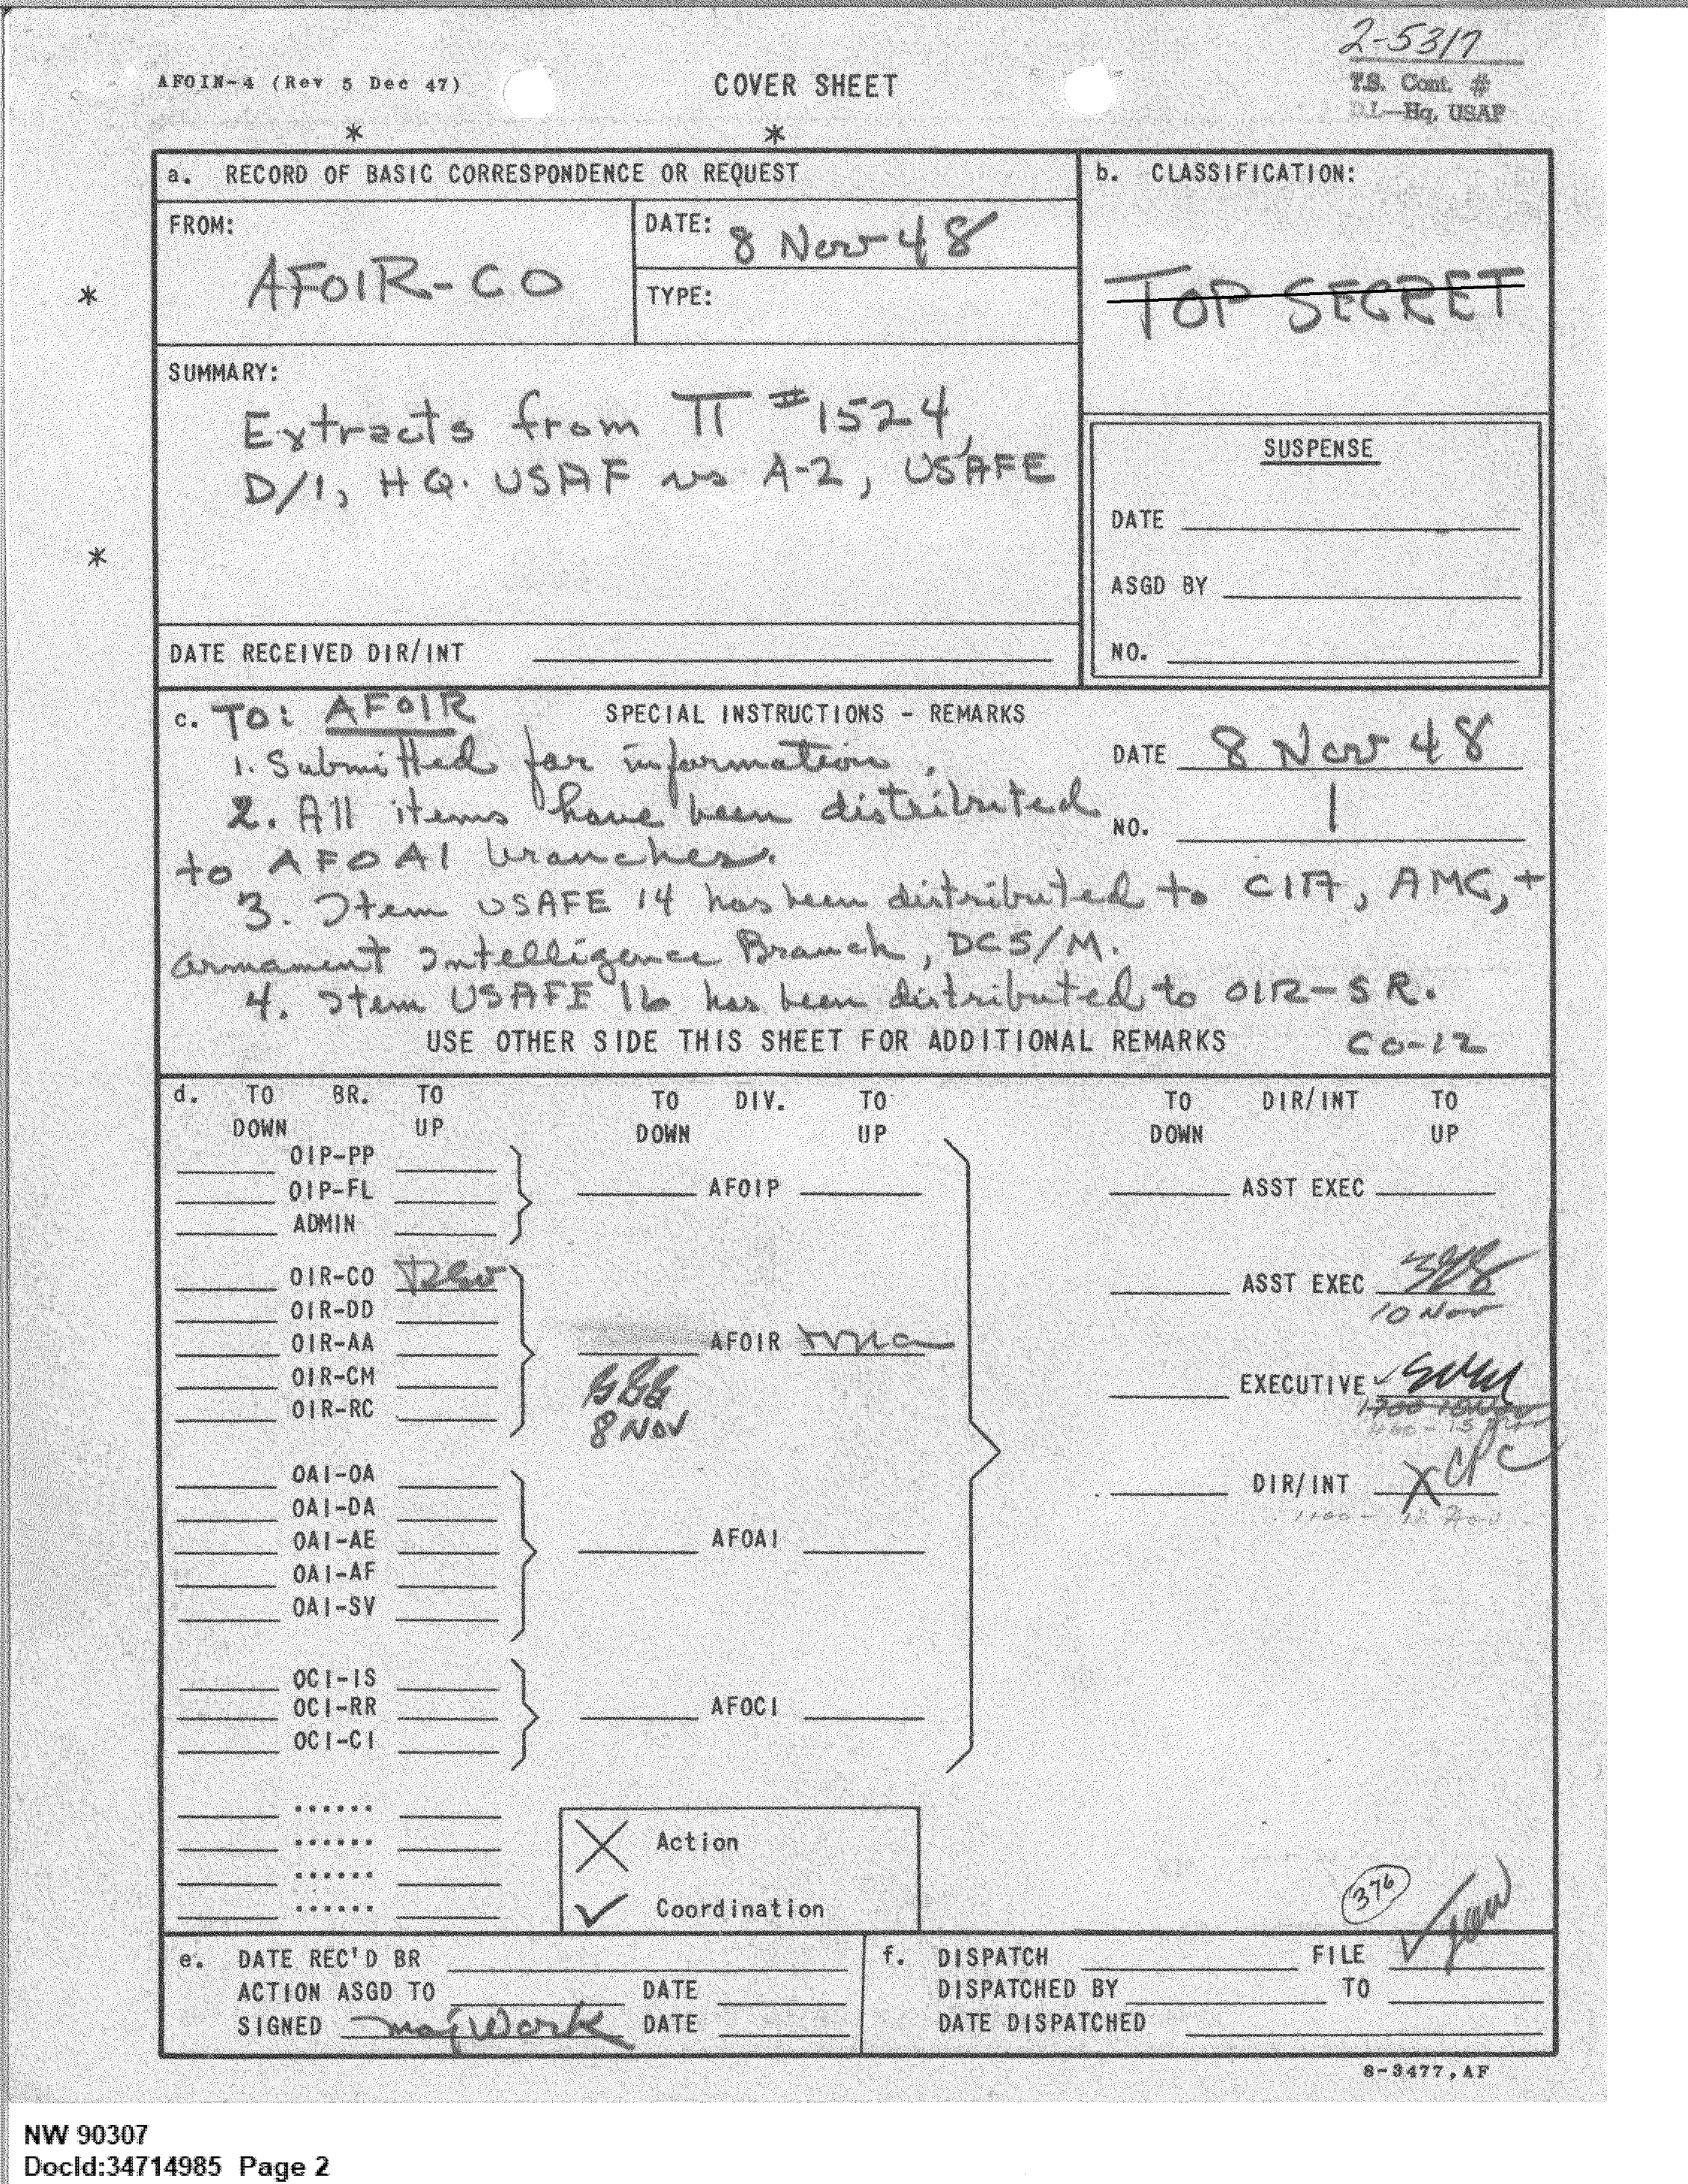 2-5317
AFOIN-4 (Rev 5 Dec 47)
COVER SHEET
T.S. Cont. #
D.I.—Hq. USAF
* *
a. RECORD OF BASIC CORRESPONDENCE OR REQUEST
b. CLASSIFICATION:
FROM:
AFOIR-CO
DATE: 8 Nov 48
TYPE:
TOP SECRET
*
SUMMARY:
Extracts from TT #1524,
D/I, HQ. USAF vs A-2, USAFE
*
SUSPENSE
DATE
ASGD BY
NO.
DATE RECEIVED DIR/INT
c. TO: AFOIR
SPECIAL INSTRUCTIONS - REMARKS
DATE 8 Nov 48
NO. 1
1. Submitted for information.
2. All items have been distributed
to AFOAI branches.
3. Item USAFE 14 has been distributed to CIA, AMC, +
Armament Intelligence Branch, DCS/M.
4. Item USAFE 16 has been distributed to OIR-SR.
USE OTHER SIDE THIS SHEET FOR ADDITIONAL REMARKS
CO-12
d. TO BR. TO TO DIV. TO TO DIR/INT TO
DOWN UP DOWN UP DOWN UP
OIP-PP
OIP-FL
ADMIN
AFOIP
ASST EXEC
OIR-CO
OIR-DD
OIR-AA
OIR-CM
OIR-RC
AFOIR
8 NOV
ASST EXEC
10 Nov
EXECUTIVE
DIR/INT X CPC
OAI-OA
OAI-DA
OAI-AE
OAI-AF
OAI-SV
AFOAI
OCI-IS
OCI-RR
OCI-CI
AFOCI
......
......
......
......
X Action
✓ Coordination
376
e. DATE REC'D BR
ACTION ASGD TO DATE
SIGNED Maj Work DATE
f. DISPATCH FILE ✓
DISPATCHED BY TO
DATE DISPATCHED
8-3477, AF
NW 90307
DocId:34714985 Page 2